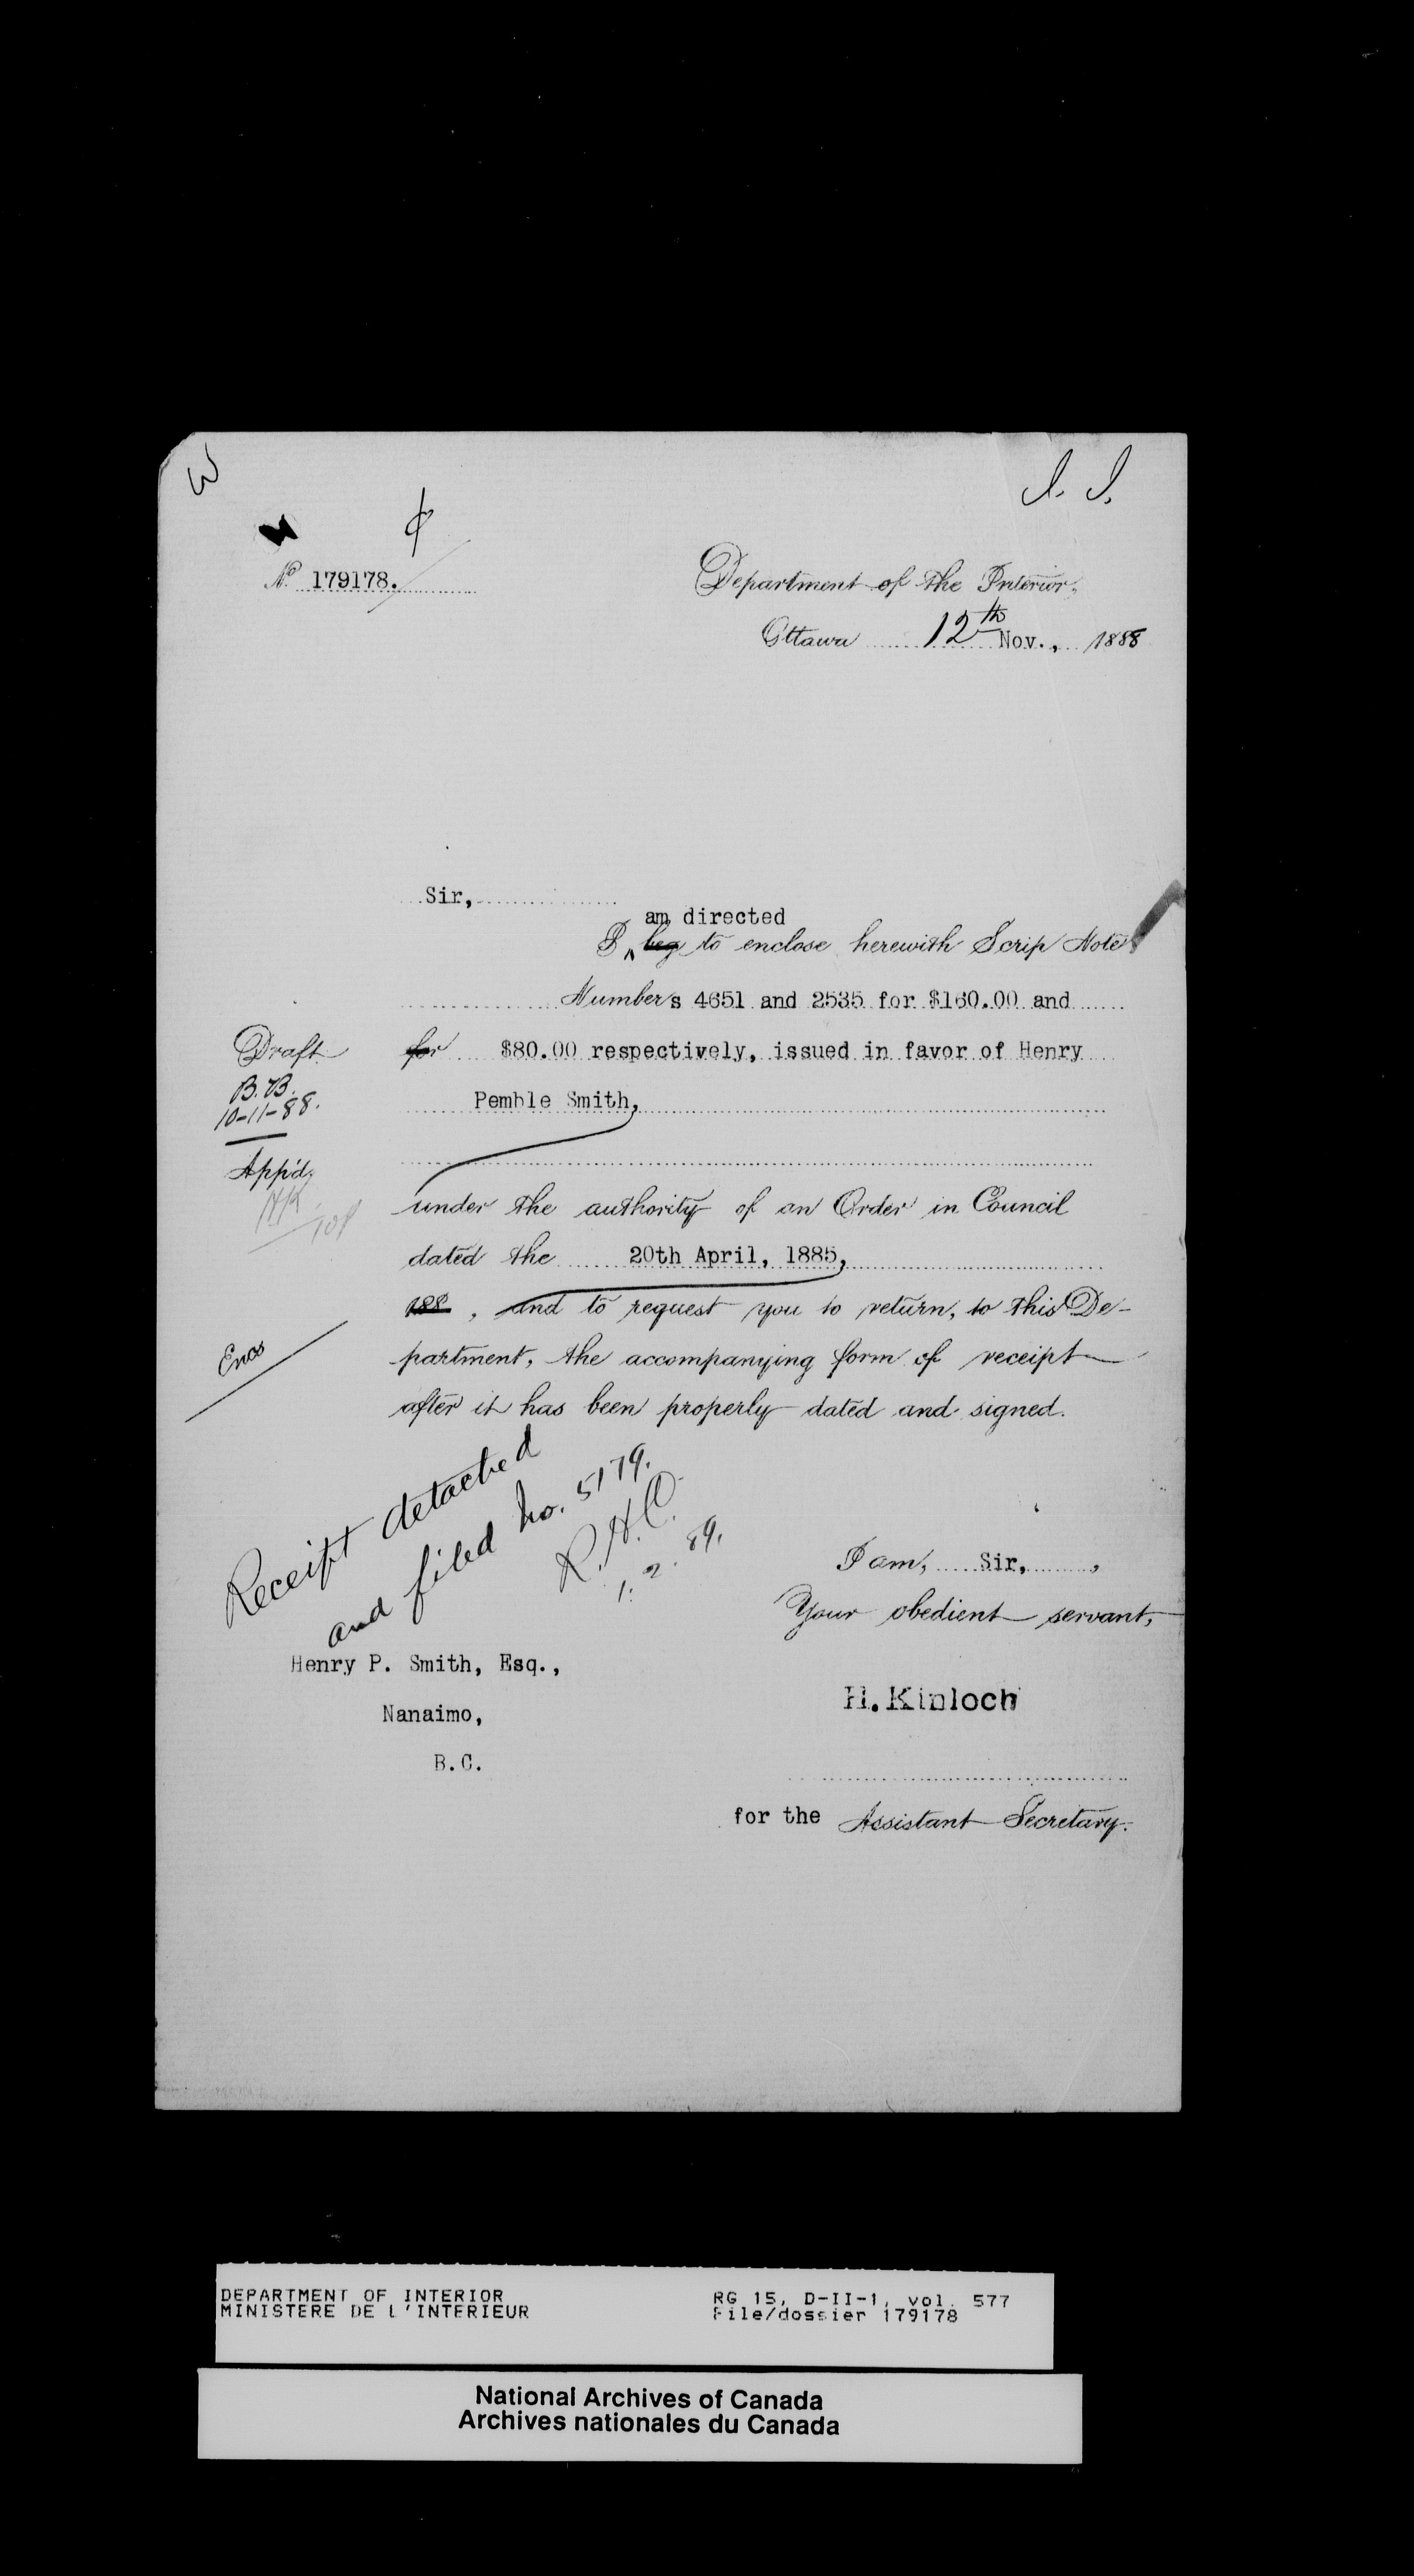 W
J. J.
No 179178.
Department of the Interior,
Ottawa 12th Nov., 1888
Sir,
am directed
I beg to enclose herewith Scrip Note
Numbers 4651 and 2535 for $160.00 and
for $80.00 respectively, issued in favor of Henry
Pemble Smith,
under the authority of an Order in Council
dated the 20th April, 1885,
188 , and to request you to return, to this De-
partment, the accompanying form of receipt
after it has been properly dated and signed.
Draft
B.B.
10-11-88.
App'd,
Encs
Receipt detached
and filed No. 5179.
R.H.C.
1. 2. 89.
I am, Sir, ,
Your obedient servant,
H. Kinloch
for the Assistant Secretary.
Henry P. Smith, Esq.,
Nanaimo,
B.C.
DEPARTMENT OF INTERIOR
MINISTERE DE L'INTERIEUR
RG 15, D-II-1, vol. 577
File/dossier 179178
National Archives of Canada
Archives nationales du Canada